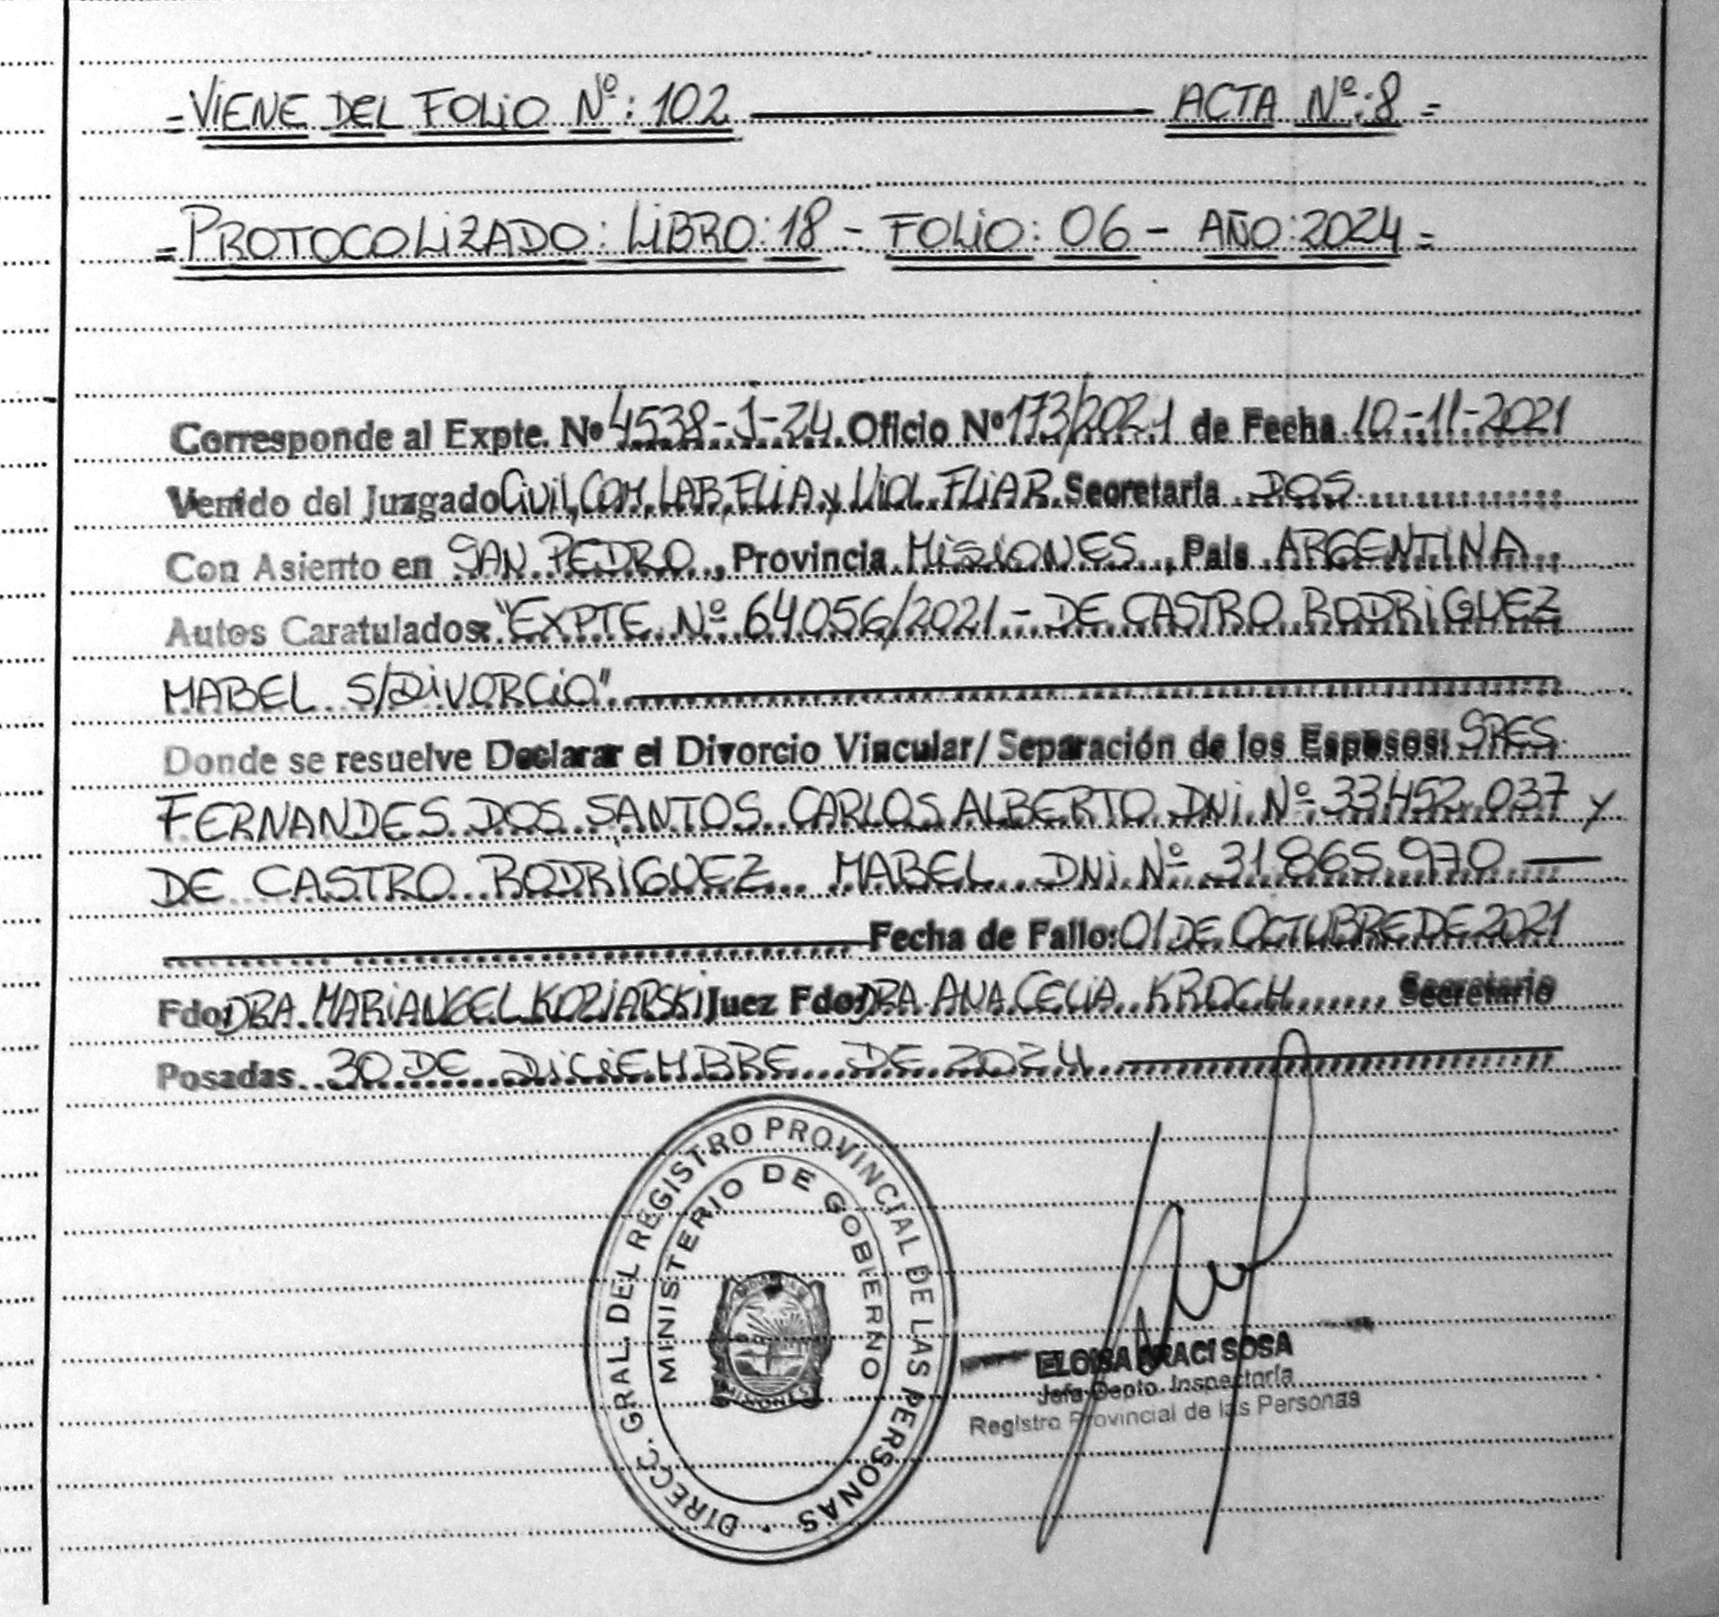 =VIENE DEL FOLIO Nº: 102 ACTA Nº: 8 =
=PROTOCOLIZADO: LIBRO: 18 - FOLIO: 06 - AÑO: 2024 =
Corresponde al Expte. Nº 4538-J-24 Oficio Nº 173/2021 de Fecha 10-11-2021
Venido del Juzgado Civil, COM, LAB, FLIA y VIOL. FLIAR. Secretaría DOS
Con Asiento en SAN PEDRO, Provincia MISIONES, País ARGENTINA
Autos Caratulados: "EXPTE Nº 64056/2021 - DE CASTRO RODRIGUEZ
MABEL S/DIVORCIO"
Donde se resuelve Declarar el Divorcio Vincular/Separación de los Esposos: SRES
FERNANDES DOS SANTOS CARLOS ALBERTO DNI Nº 33.452.037 y
DE CASTRO RODRIGUEZ MABEL DNI Nº 31.865.970
Fecha de Fallo: 01 DE OCTUBRE DE 2021
Fdo: DRA. MARIANGEL KOZIARSKI Juez Fdo: DRA. ANA CELIA KROCH Secretario
Posadas 30 DE DICIEMBRE DE 2024
DIRECC. GRAL. DEL REGISTRO PROVINCIAL DE LAS PERSONAS
MINISTERIO DE GOBIERNO
MISIONES
ELOISA ARACI SOSA
Jefa Depto. Inspectoría
Registro Provincial de las Personas